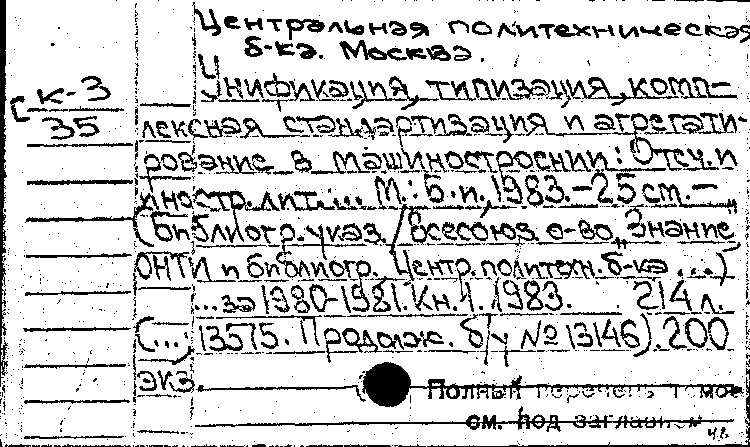 Центральная политехническая
б-ка. Москва.
[К-3
35
Унификация, типизация, комп-
лексная стандартизация и агрегати-
рование в машиностроении: Отеч. и
иностр. лит. ... М.: Б. и., 1983. - 25 см. -
(Библиогр. указ. / Всесоюз. о-во „Знание”
ОНТИ и библиогр. Центр. политехн. б-ка ...)
... за 1980-1981. Кн. 1. 1983. 214 л.
(...; 13575. Продолж. б/у № 13146). 200
экз.
Полный перечень томов
см. под заглавием